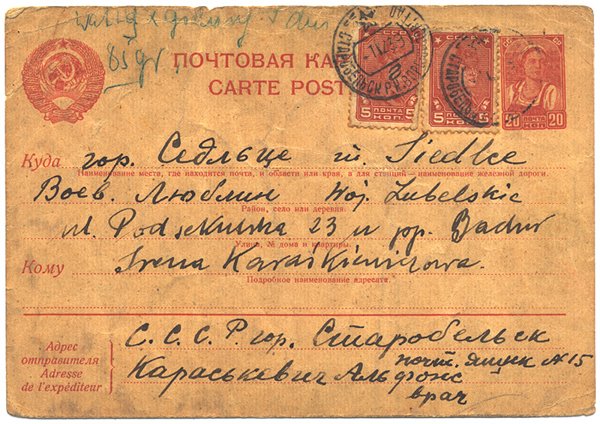 85 gr.
ПОЧТОВАЯ КА
CARTE POST
5 ПОЧТА 5
КОП.
5 ПОЧТА
КОП.
20 ПОЧТА 20
КОП.
Куда гор. Седльце m. Siedlce
Наименование места, где находится почта, и области или края, а для станций – наименование железной дороги.
Воев. Люблин Woj. Lubelskie
Район, село или деревня.
ul. 23 u pp.
Улица, № дома и квартиры.
Кому Irena Karaśkiewiczowa.
Подробное наименование адресата.
Адрес отправителя
Adresse de l'expéditeur
С. С. С. Р. гор. Старобельск
почт. ящик № 15
Караськевич Альфонс
врач